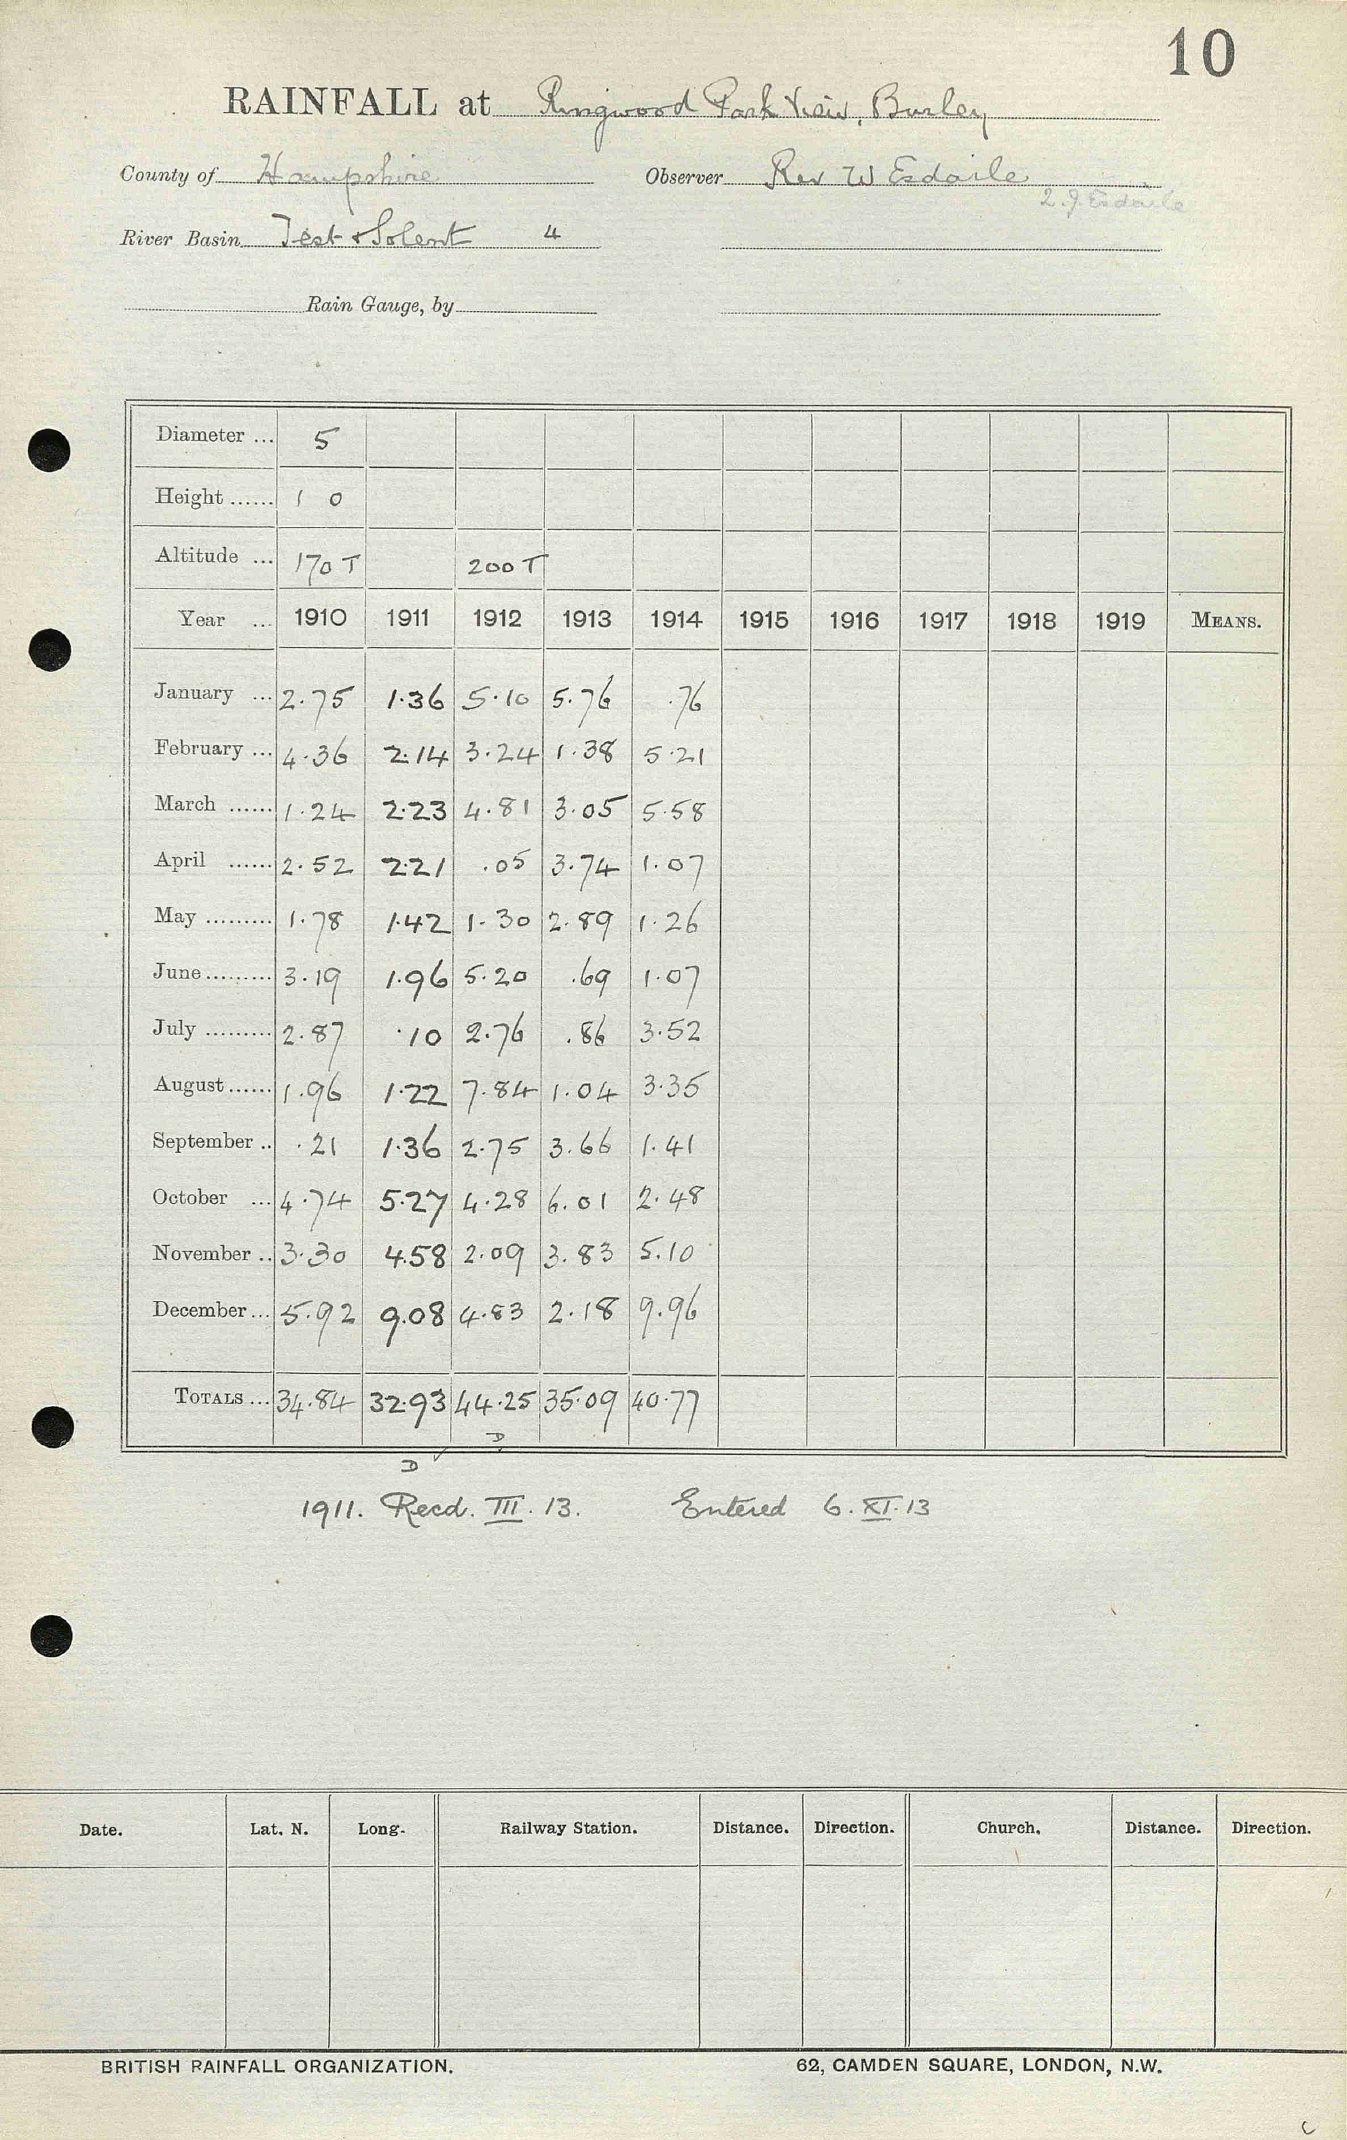 10
RAINFALL at Ringwood Park View, Burley
County of Hampshire Observer Rev W Esdaile
2.J. Esdaile
River Basin Test & Solent 4
Rain Gauge, by
Diameter ... 5
Height ...... 1 0
Altitude ... 170 T 200 T
Year ... 1910 1911 1912 1913 1914 1915 1916 1917 1918 1919 MEANS.
January ... 2.75 1.36 5.10 5.76 .76
February ... 4.36 2.14 3.24 1.38 5.21
March ...... 1.24 2.23 4.81 3.05 5.58
April ...... 2.52 2.21 .05 3.74 1.07
May ......... 1.78 1.42 1.30 2.89 1.26
June ......... 3.19 1.96 5.20 .69 1.07
July ......... 2.87 .10 2.76 .86 3.52
August ...... 1.96 1.22 7.84 1.04 3.35
September .. .21 1.36 2.75 3.66 1.41
October ... 4.74 5.27 4.28 6.01 2.48
November .. 3.30 4.58 2.09 3.83 5.10
December ... 5.92 9.08 4.83 2.18 9.96
TOTALS ... 34.84 32.93 44.25 35.09 40.77
D
D ✓
1911. Recd. III. 13. Entered 6. XI. 13
Date. Lat. N. Long. Railway Station. Distance. Direction. Church. Distance. Direction.
BRITISH RAINFALL ORGANIZATION. 62, CAMDEN SQUARE, LONDON, N.W.
c